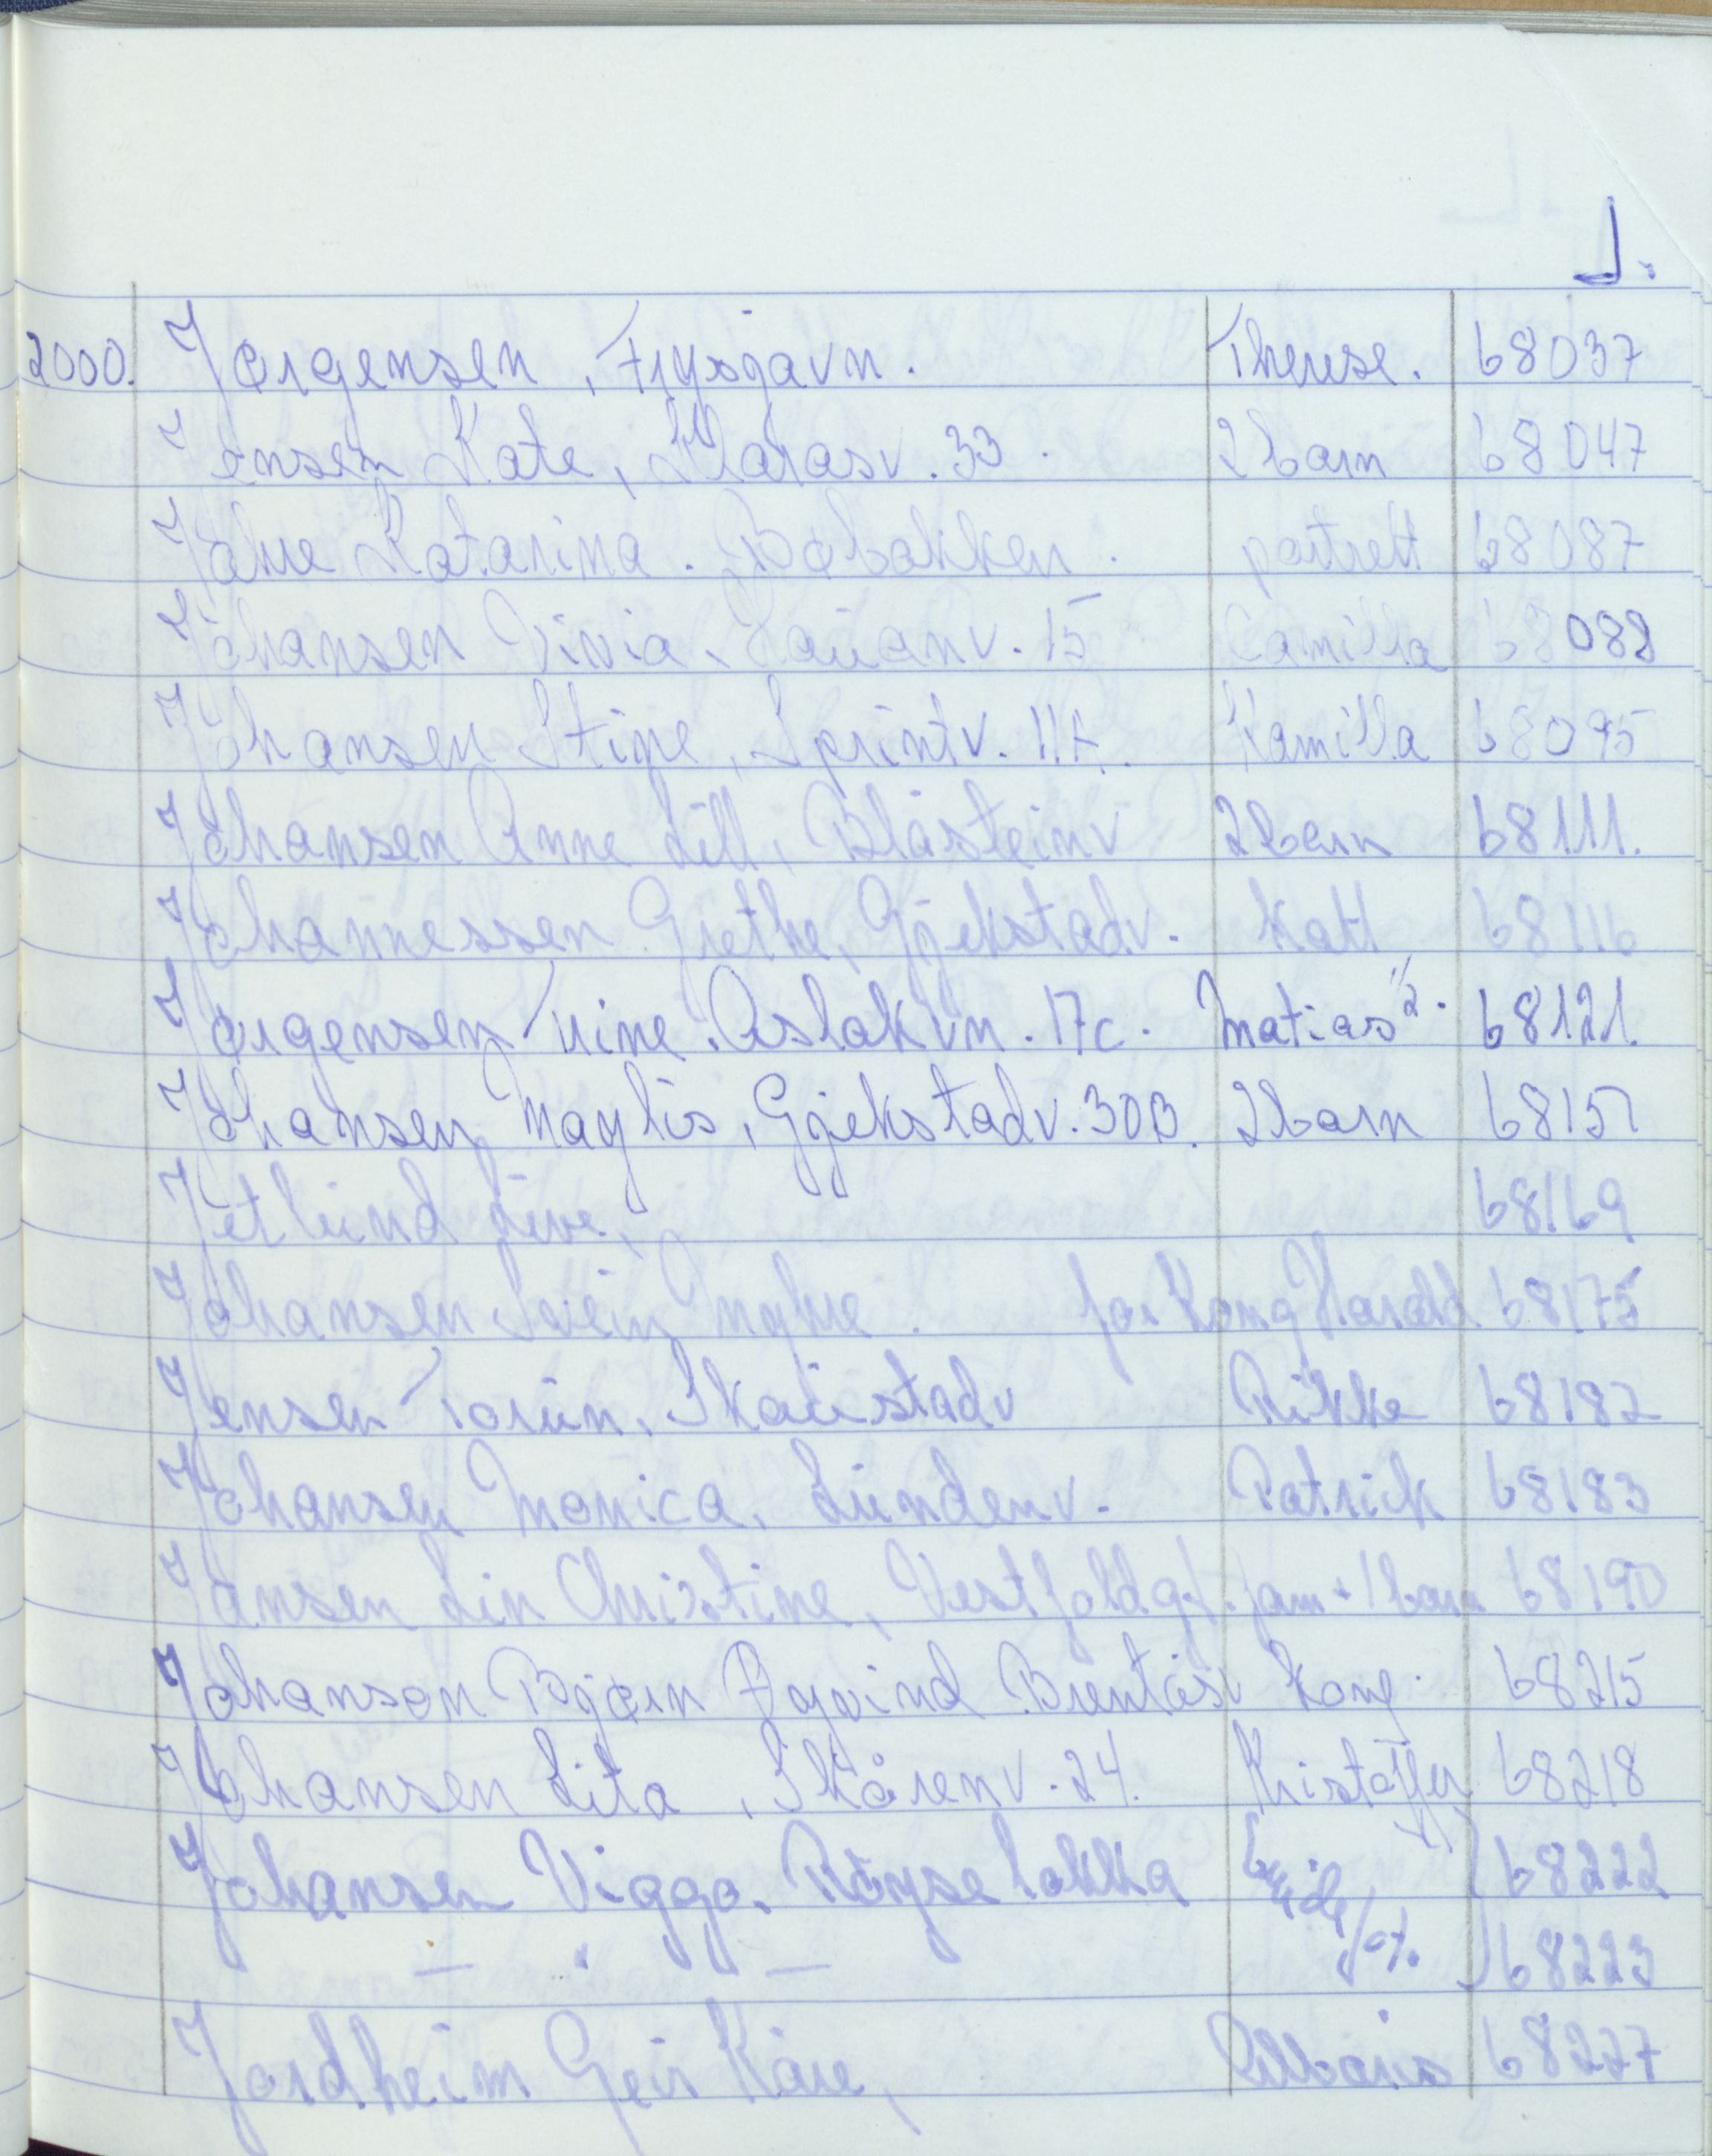 J.
2000. Jørgensen, Frysjavn. Therese. 68037
Jensen Kate, Klarasv. 33. 2 barn 68047
Jahre Katarina. Bøbakken. portrett 68087
Johansen Vivia, Hauanv. 15 Camilla 68088
Johansen Stine, Sprintv. 11A. Kamilla 68095
Johansen Anne Lill, Blåsteinv 2 barn 68111.
Johannessen Grethe, Gjekstadv. Katt 68116
Jørgensen Trine. Aslakvn. 17c. Matias 1/2. 68121.
Johansen Maylis, Gjekstadv. 30B. 2 barn 68157
Jetlund Live, 68169
Johansen Svein Yngve. for Kong Harald 68175
Jensen Torun, Skaustadv Rikke 68182
Johansen Monica, Lundenv. Patrick 68183
Jansen Lin Christine, Vestfoldgt. fam + 1 barn 68190
Johanson Bjørn Øyvind Brentåsv Kong. 68215
Johansen Lita, Skårenv. 24. Kristoffer 68218
Johansen Viggo. Røyseløkka 68222
— " — 68223
Jordheim Geir Kåre, 68227